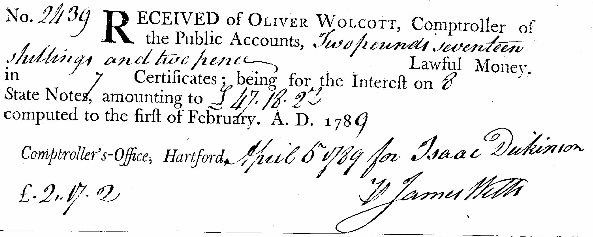 No. 2439 RECEIVED of OLIVER WOLCOTT, Comptroller of
the Public Accounts, Two pounds seventeen
shillings and two pence Lawful Money.
in 7 Certificates; being for the Interest on 8
State Notes, amounting to £47.18.2
computed to the first of February. A. D. 1789
Comptroller's-Office, Hartford, April 5 1789 for Isaac Dickinson
£. 2.17.2 James